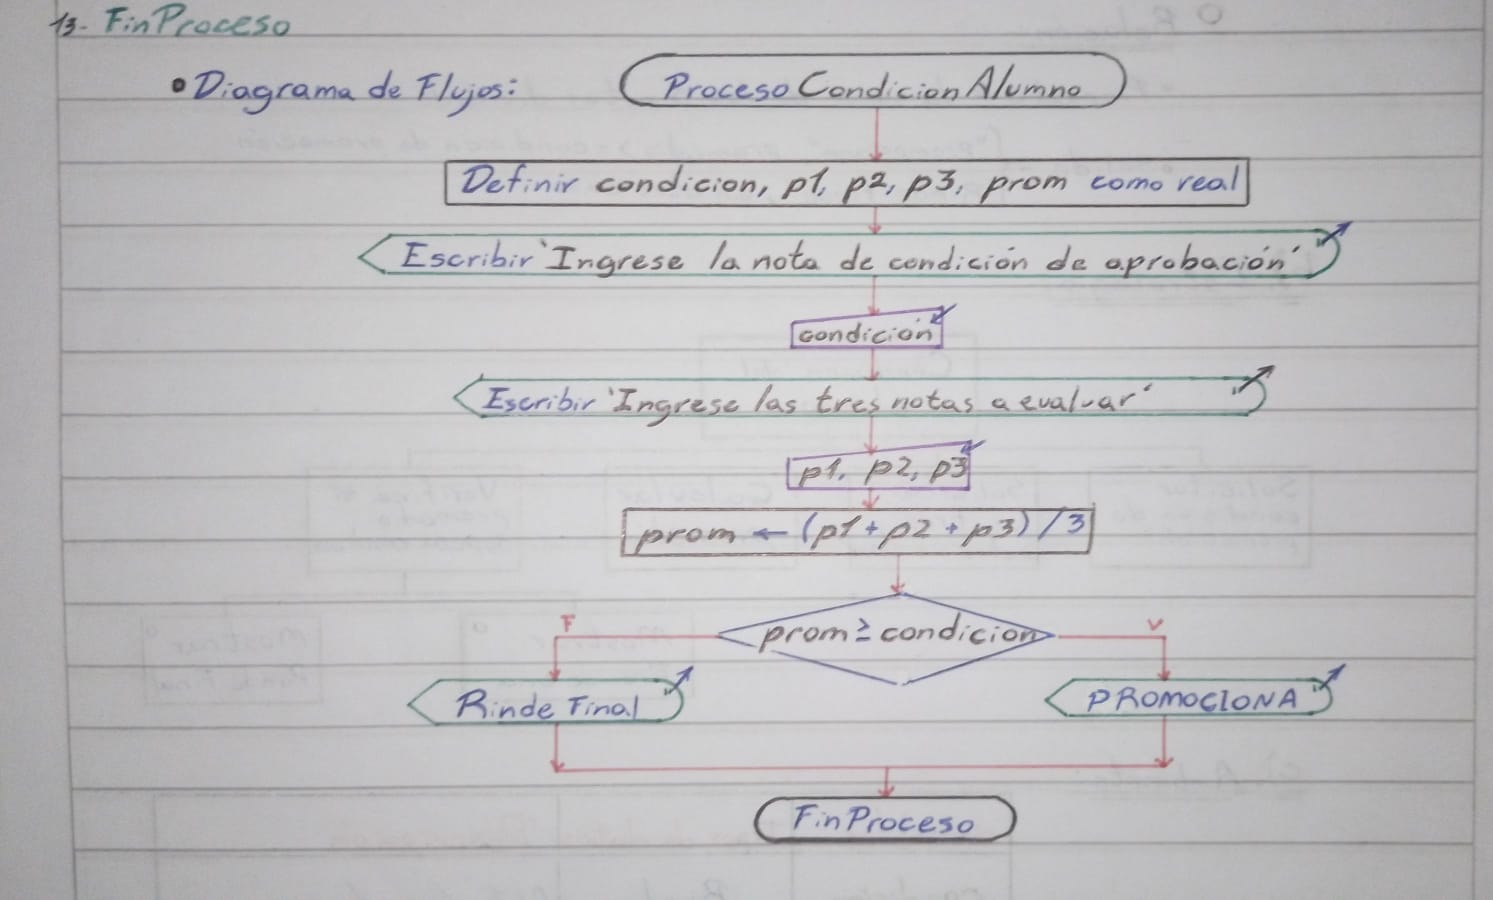 13- FinProceso
• Diagrama de Flujos:
Proceso CondicionAlumno
Definir condicion, p1, p2, p3, prom como real
Escribir 'Ingrese la nota de condición de aprobación'
condición
Escribir 'Ingrese las tres notas a evaluar'
p1, p2, p3
prom ← (p1 + p2 + p3) / 3
prom ≥ condicion
F
V
Rinde Final
PROMOCIONA
FinProceso